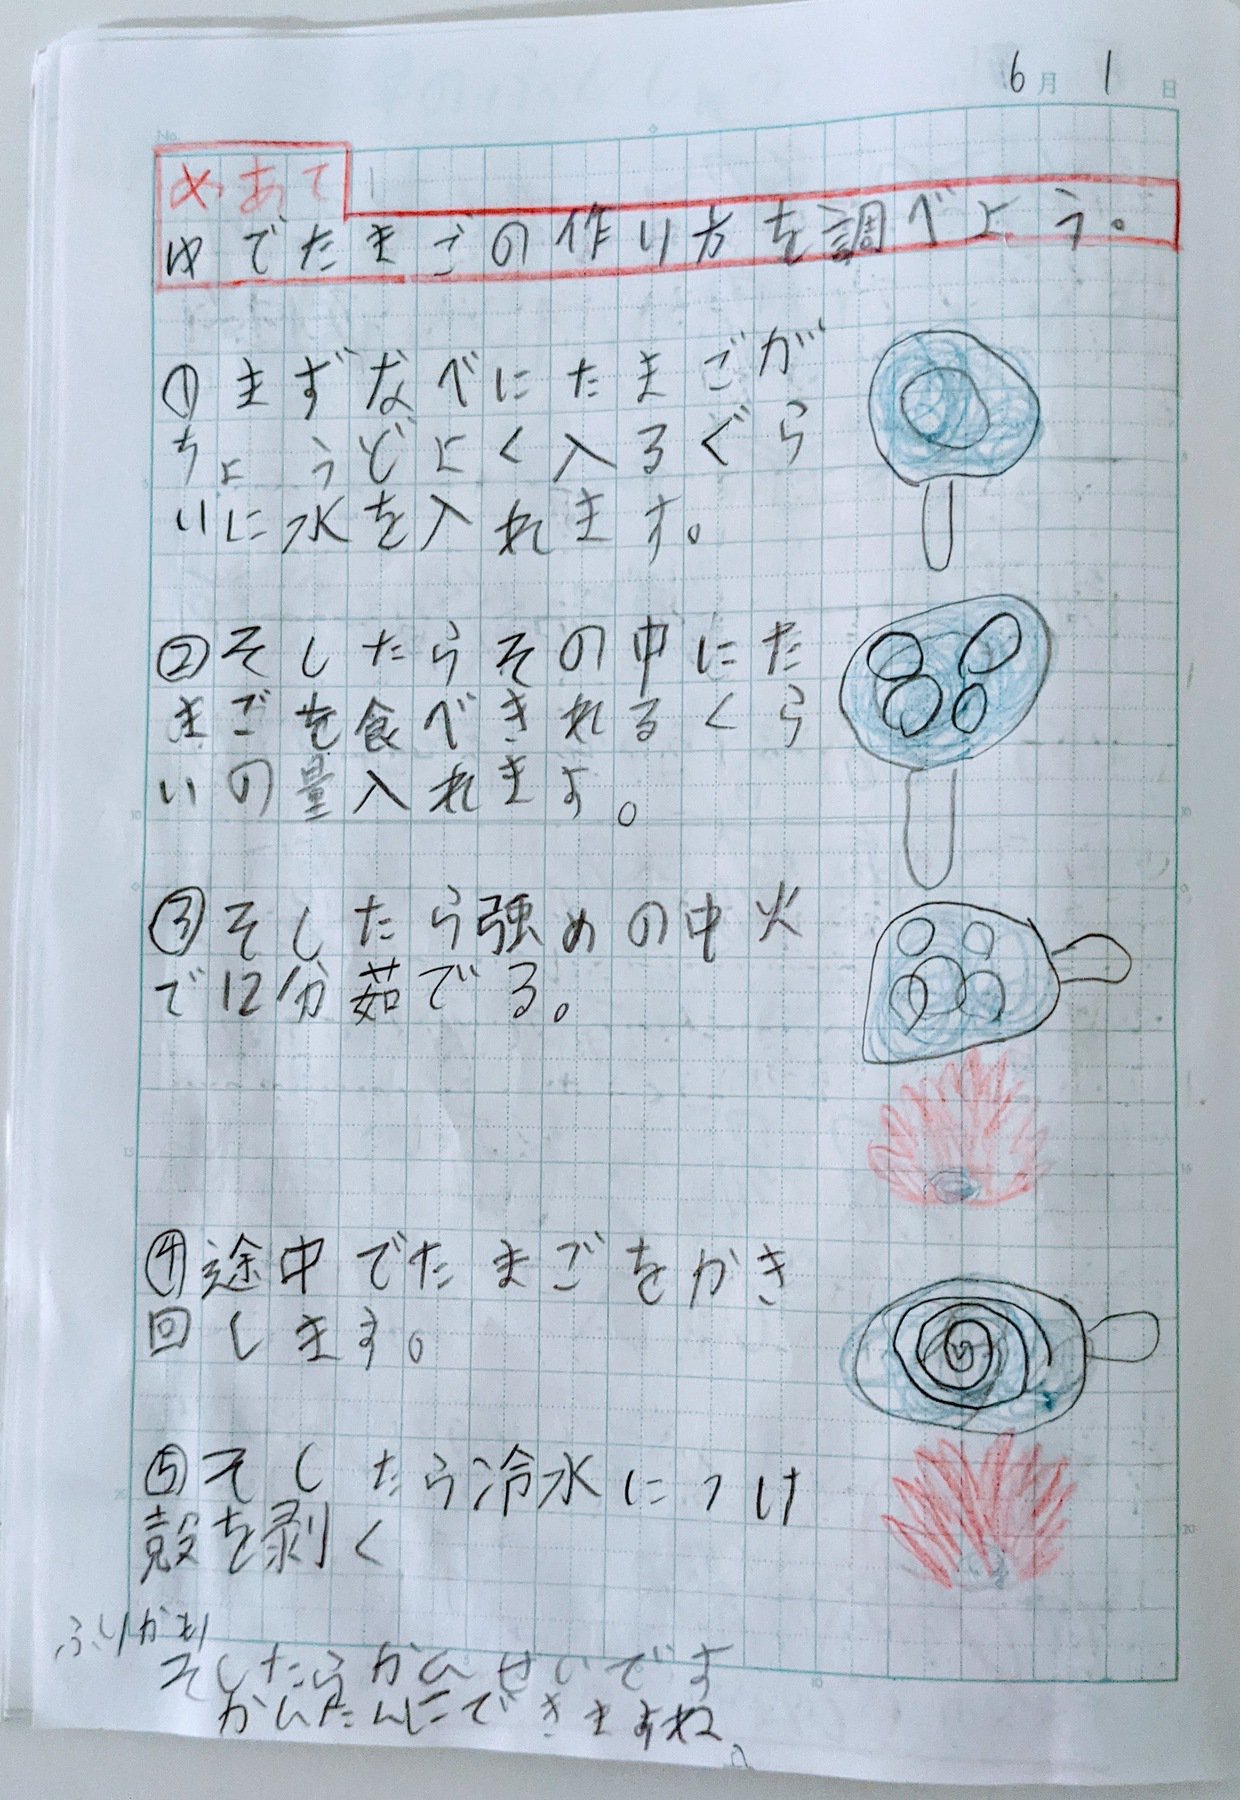 6月 1日
めあて
ゆでたまごの作り方を調べよう。
①まずなべにたまごが
ちょうどよく入るぐら
いに水を入れます。
②そしたらその中にた
まごを食べきれるくら
いの量入れます。
③そしたら強めの中火
で12分茹でる。
④途中でたまごをかき
回します。
⑤そしたら冷水につけ
殻を剥く
そしたらかんせいです
かんたんにできますね。